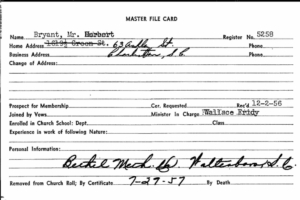 MASTER FILE CARD
Name Bryant, Mr. Herbert Register No. 5258
Home Address 1619½ Green St. 63 Ashley St. Phone
Business Address Charleston, S.C. Phone
Change of Address:
Prospect for Membership Cor. Requested Rec'd 12-2-56
Joined by Vows Minister in Charge Wallace Fridy
Enrolled in Church School: Dept. Class
Experience in work of following Nature:
Personal Information:
Bethel Meth. Ch. Walterboro, S.C.
Removed from Church Roll; By Certificate 7-29-57 By Death